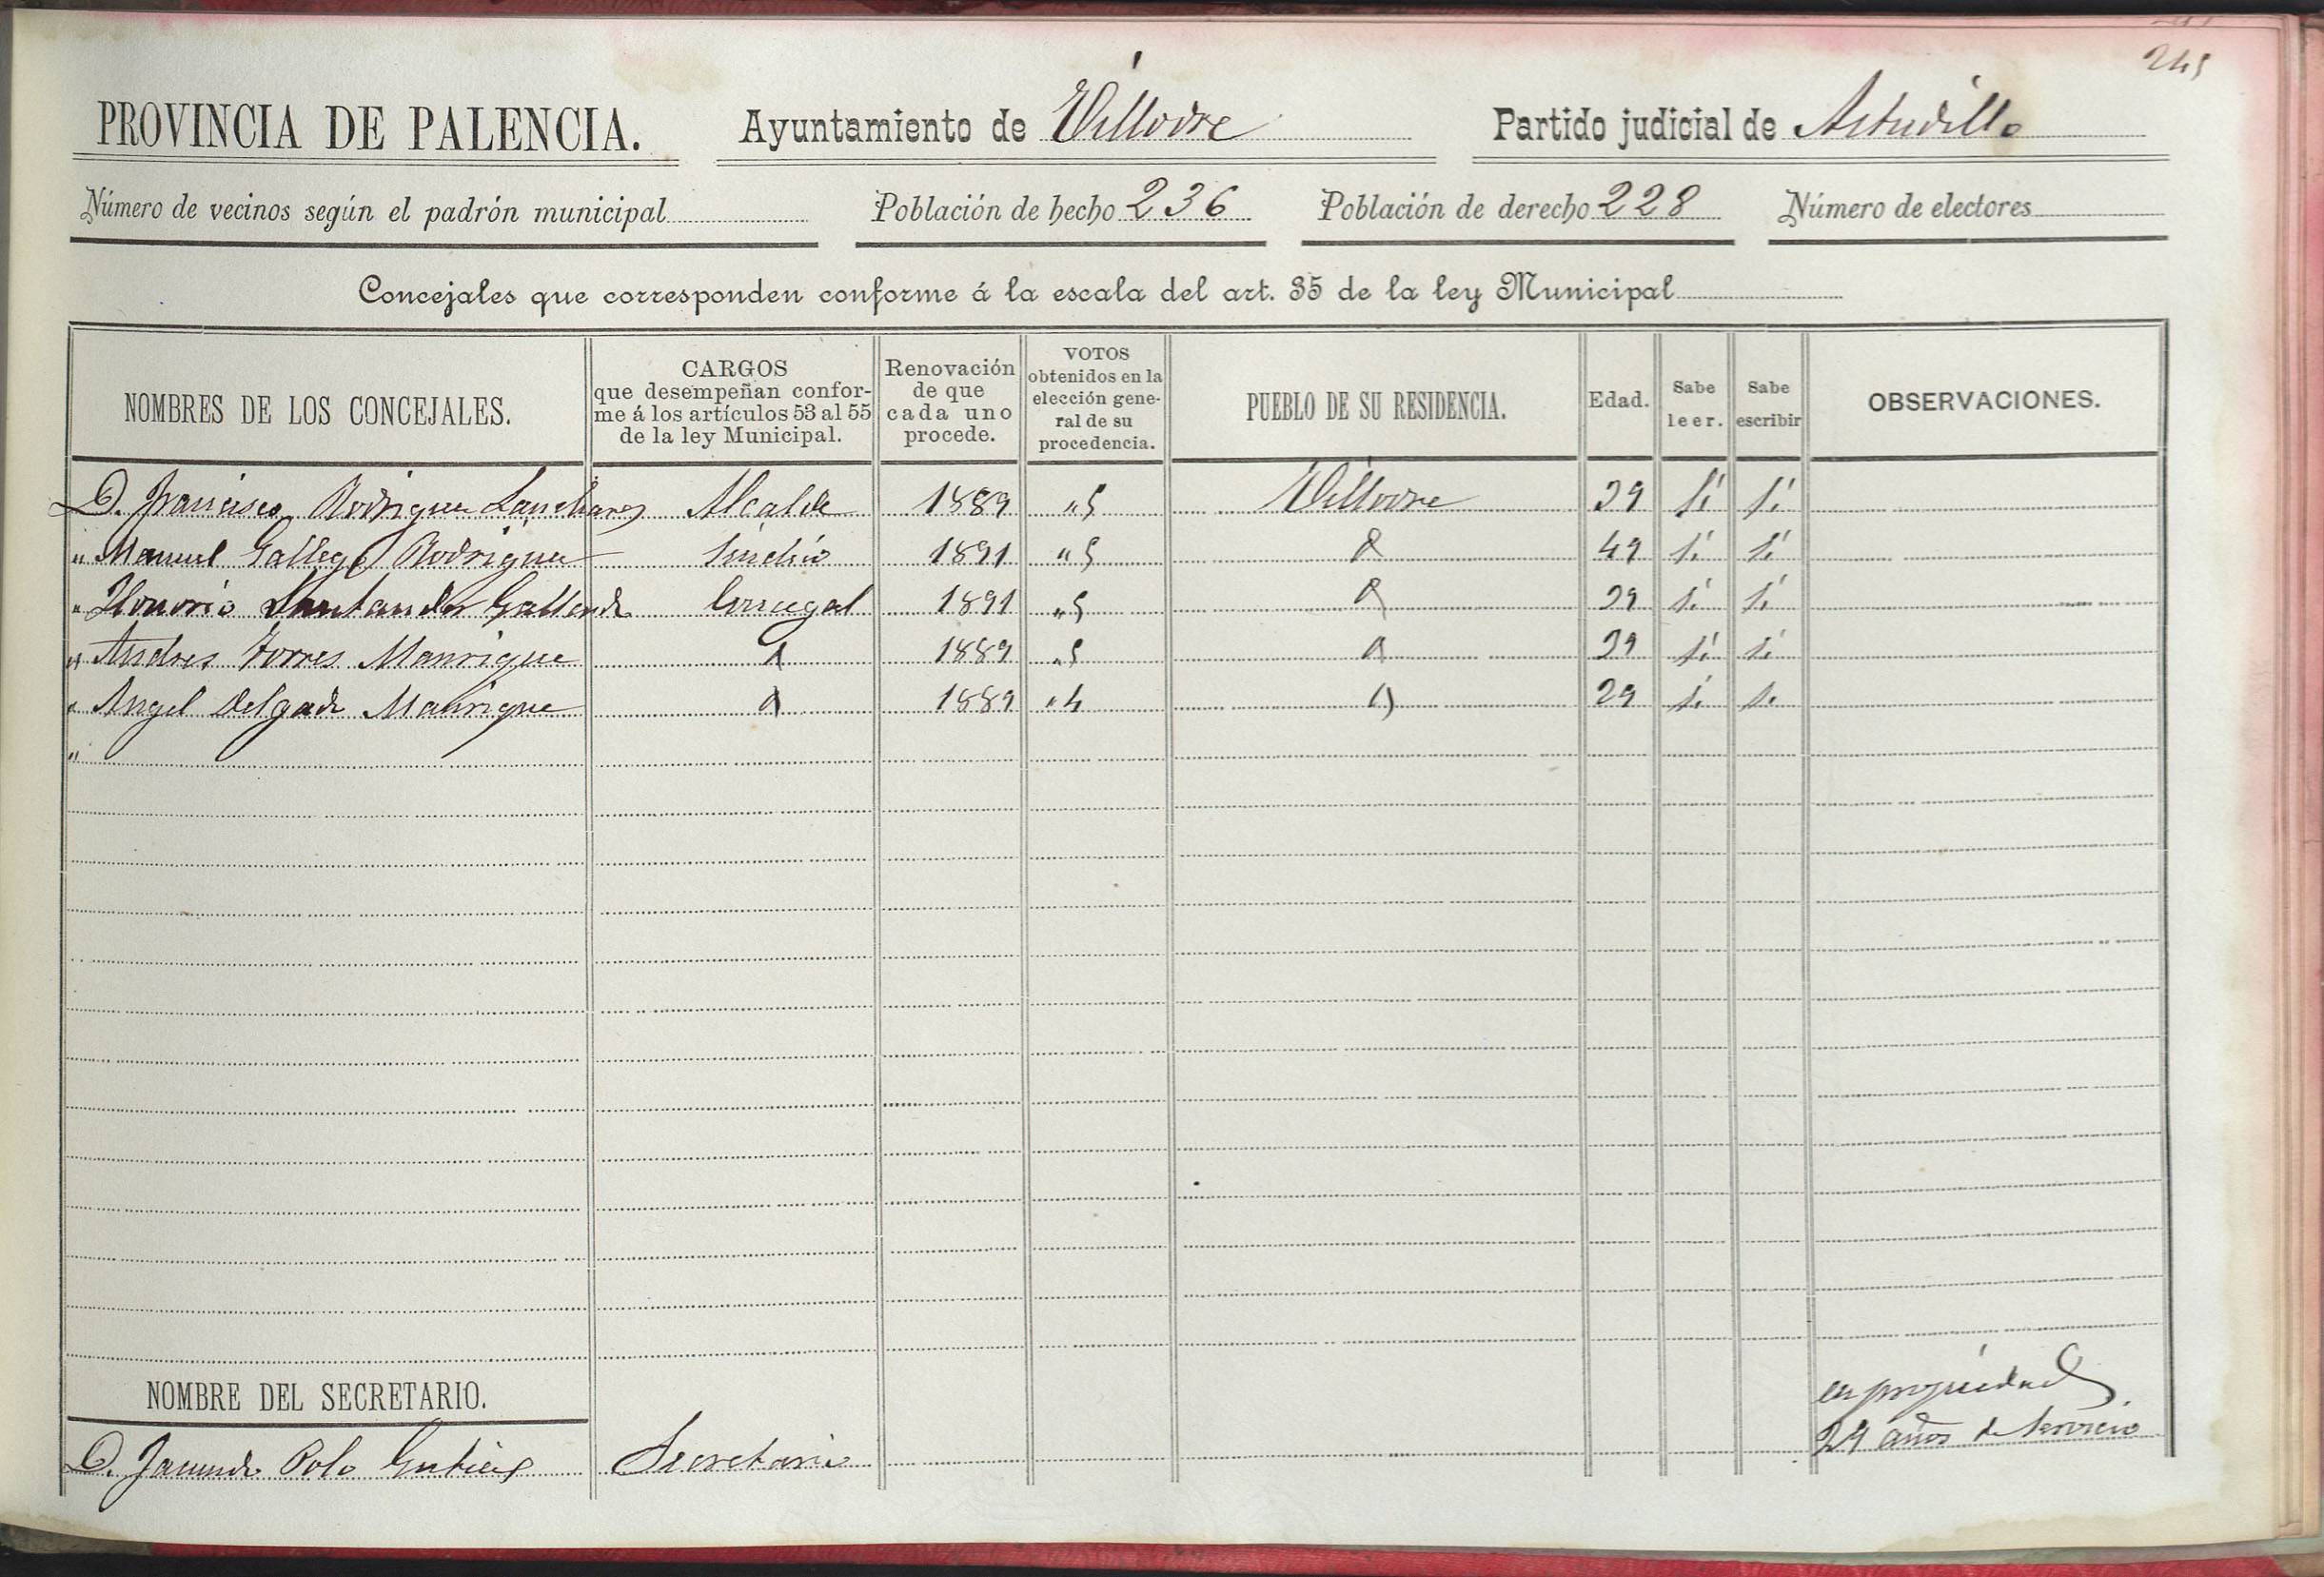 245
PROVINCIA DE PALENCIA. Ayuntamiento de Villodre Partido judicial de Astudillo
Número de vecinos según el padrón municipal Población de hecho 236 Población de derecho 228 Número de electores
Concejales que corresponden conforme á la escala del art. 35 de la ley Municipal
NOMBRES DE LOS CONCEJALES. CARGOS que desempeñan conforme á los artículos 53 al 55 de la ley Municipal. Renovación de que cada uno procede. VOTOS obtenidos en la elección general de su procedencia. PUEBLO DE SU RESIDENCIA. Edad. Sabe leer. Sabe escribir OBSERVACIONES.
D. Francisco Rodriguez Lanchares Alcalde 1889 "5 Villodre 39 Sí Sí
" Manuel Gallego Rodriguez Sindico 1891 "5 49 sí sí
" Honorio Santander Gallardo Concegal 1891 "5 39 sí sí
" Andres Torres Manrique 1889 "5 39 sí sí
" Angel Delgado Manrique 1889 "4 29 sí si
"
NOMBRE DEL SECRETARIO.
en propiedad
D. Polo Secretario 29 años de Servicio